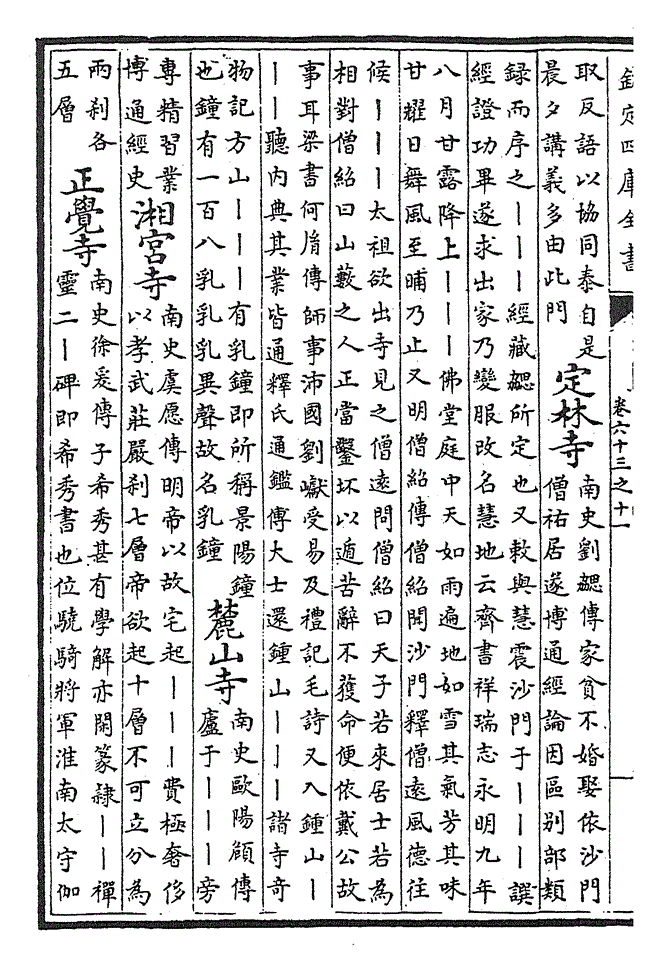 欽定四庫全書
卷六十三之十一
取反語以協同泰自是
晨夕講義多由此門
定林寺
南史劉勰傳家貧不婚娶依沙門
僧祐居遂博通經論因區別部類
録而序之｜｜｜經藏勰所定也又敕與慧震沙門于｜｜｜譔
經證功畢遂求出家乃變服改名慧地云齊書祥瑞志永明九年
八月甘露降上｜｜｜佛堂庭中天如雨遍地如雪其氣芳其味
甘耀日舞風至晡乃止又明僧紹傳僧紹聞沙門釋僧遠風德往
候｜｜｜太祖欲出寺見之僧遠問僧紹曰天子若來居士若為
相對僧紹曰山藪之人正當鑿坏以遁苦辭不獲命便依戴公故
事耳梁書何胤傳師事沛國劉瓛受易及禮記毛詩又入鍾山｜
｜｜聽內典其業皆通釋氏通鑑傳大士還鍾山｜｜｜諸寺奇
物記方山｜｜｜有乳鐘即所稱景陽鐘
也鐘有一百八乳乳乳異聲故名乳鐘
麓山寺
南史歐陽頠傳
廬于｜｜｜旁
專精習業
博通經史
湘宮寺
南史虞愿傳明帝以故宅起｜｜｜費極奢侈
以孝武莊嚴刹七層帝欲起十層不可立分為
兩刹各
五層
正覺寺
南史徐爰傳子希秀甚有學解亦閑篆隸｜｜禪
靈二｜碑即希秀書也位驍騎將軍淮南太守伽